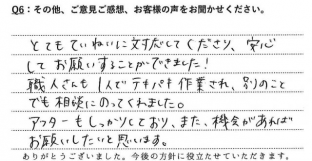 Q6：その他、ご意見ご感想、お客様の声をお聞かせください。
とてもていねいに対応してくださり、安心
してお願いすることができました！
職人さんも1人でテキパキ作業され、別のこと
でも相談にのってくれました。
アフターもしっかりしており、また、機会があれば
お願いしたいと思います。
ありがとうございました。今後の方針に役立たせていただきます。